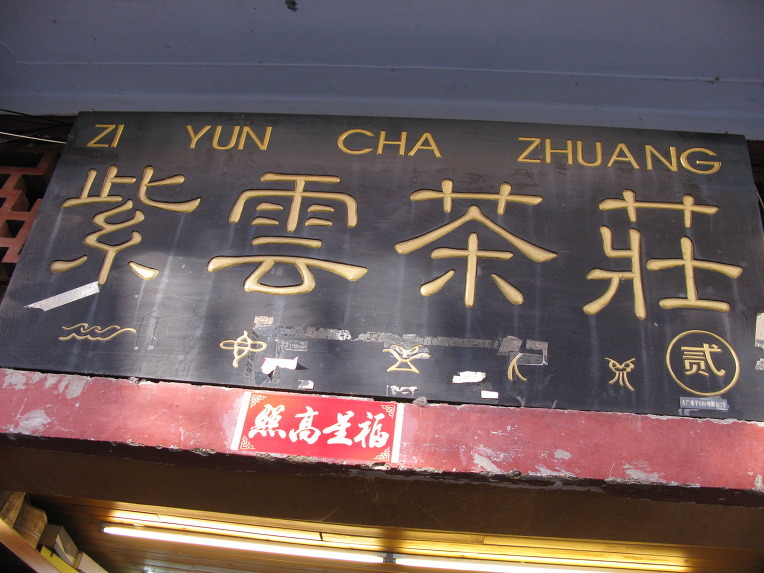 ZI YUN CHA ZHUANG
紫雲茶莊
贰
福星高照